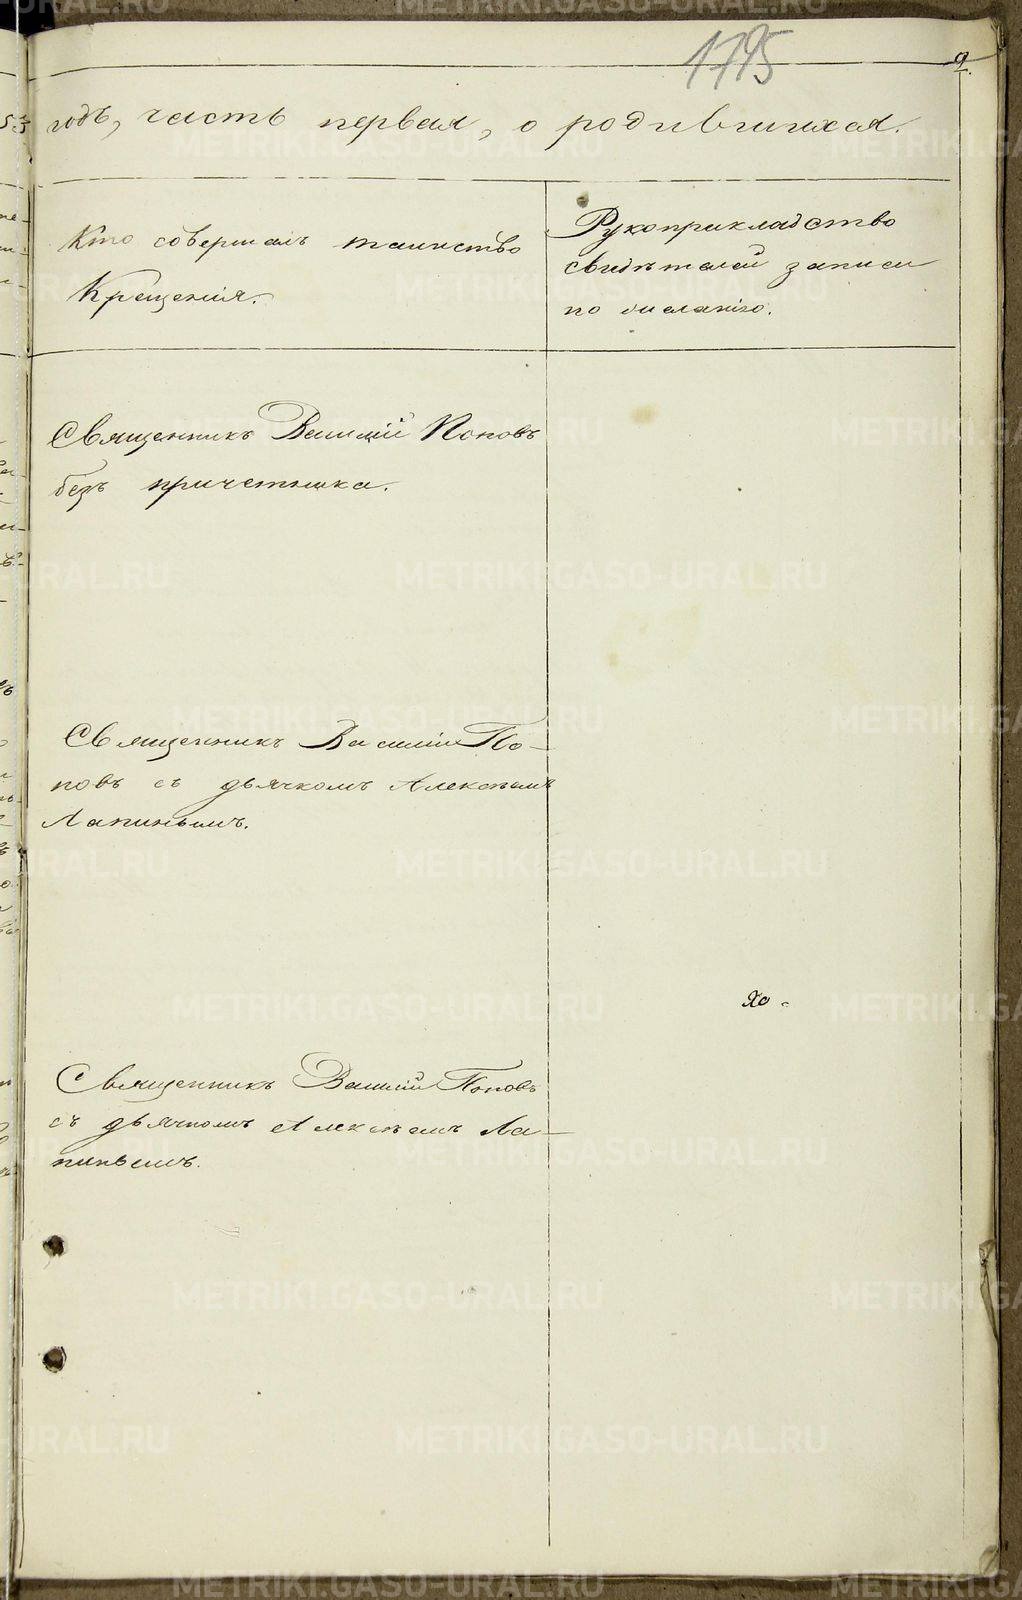 1795
9.
годъ, часть первая, о родившихся.
Кто совершалъ таинство
Крещенія.
Рукоприкладство
свидѣтелей записи
по желанію.
Священникъ Василій Поповъ
безъ причетника.
Священникъ Василій По-
повъ съ дьячкомъ Алексѣемъ
Лапинымъ.
хо-
Священникъ Василій Поповъ
съ дьячкомъ Алексѣемъ Ла-
пинымъ.
METRIKI.GASO-URAL.RU